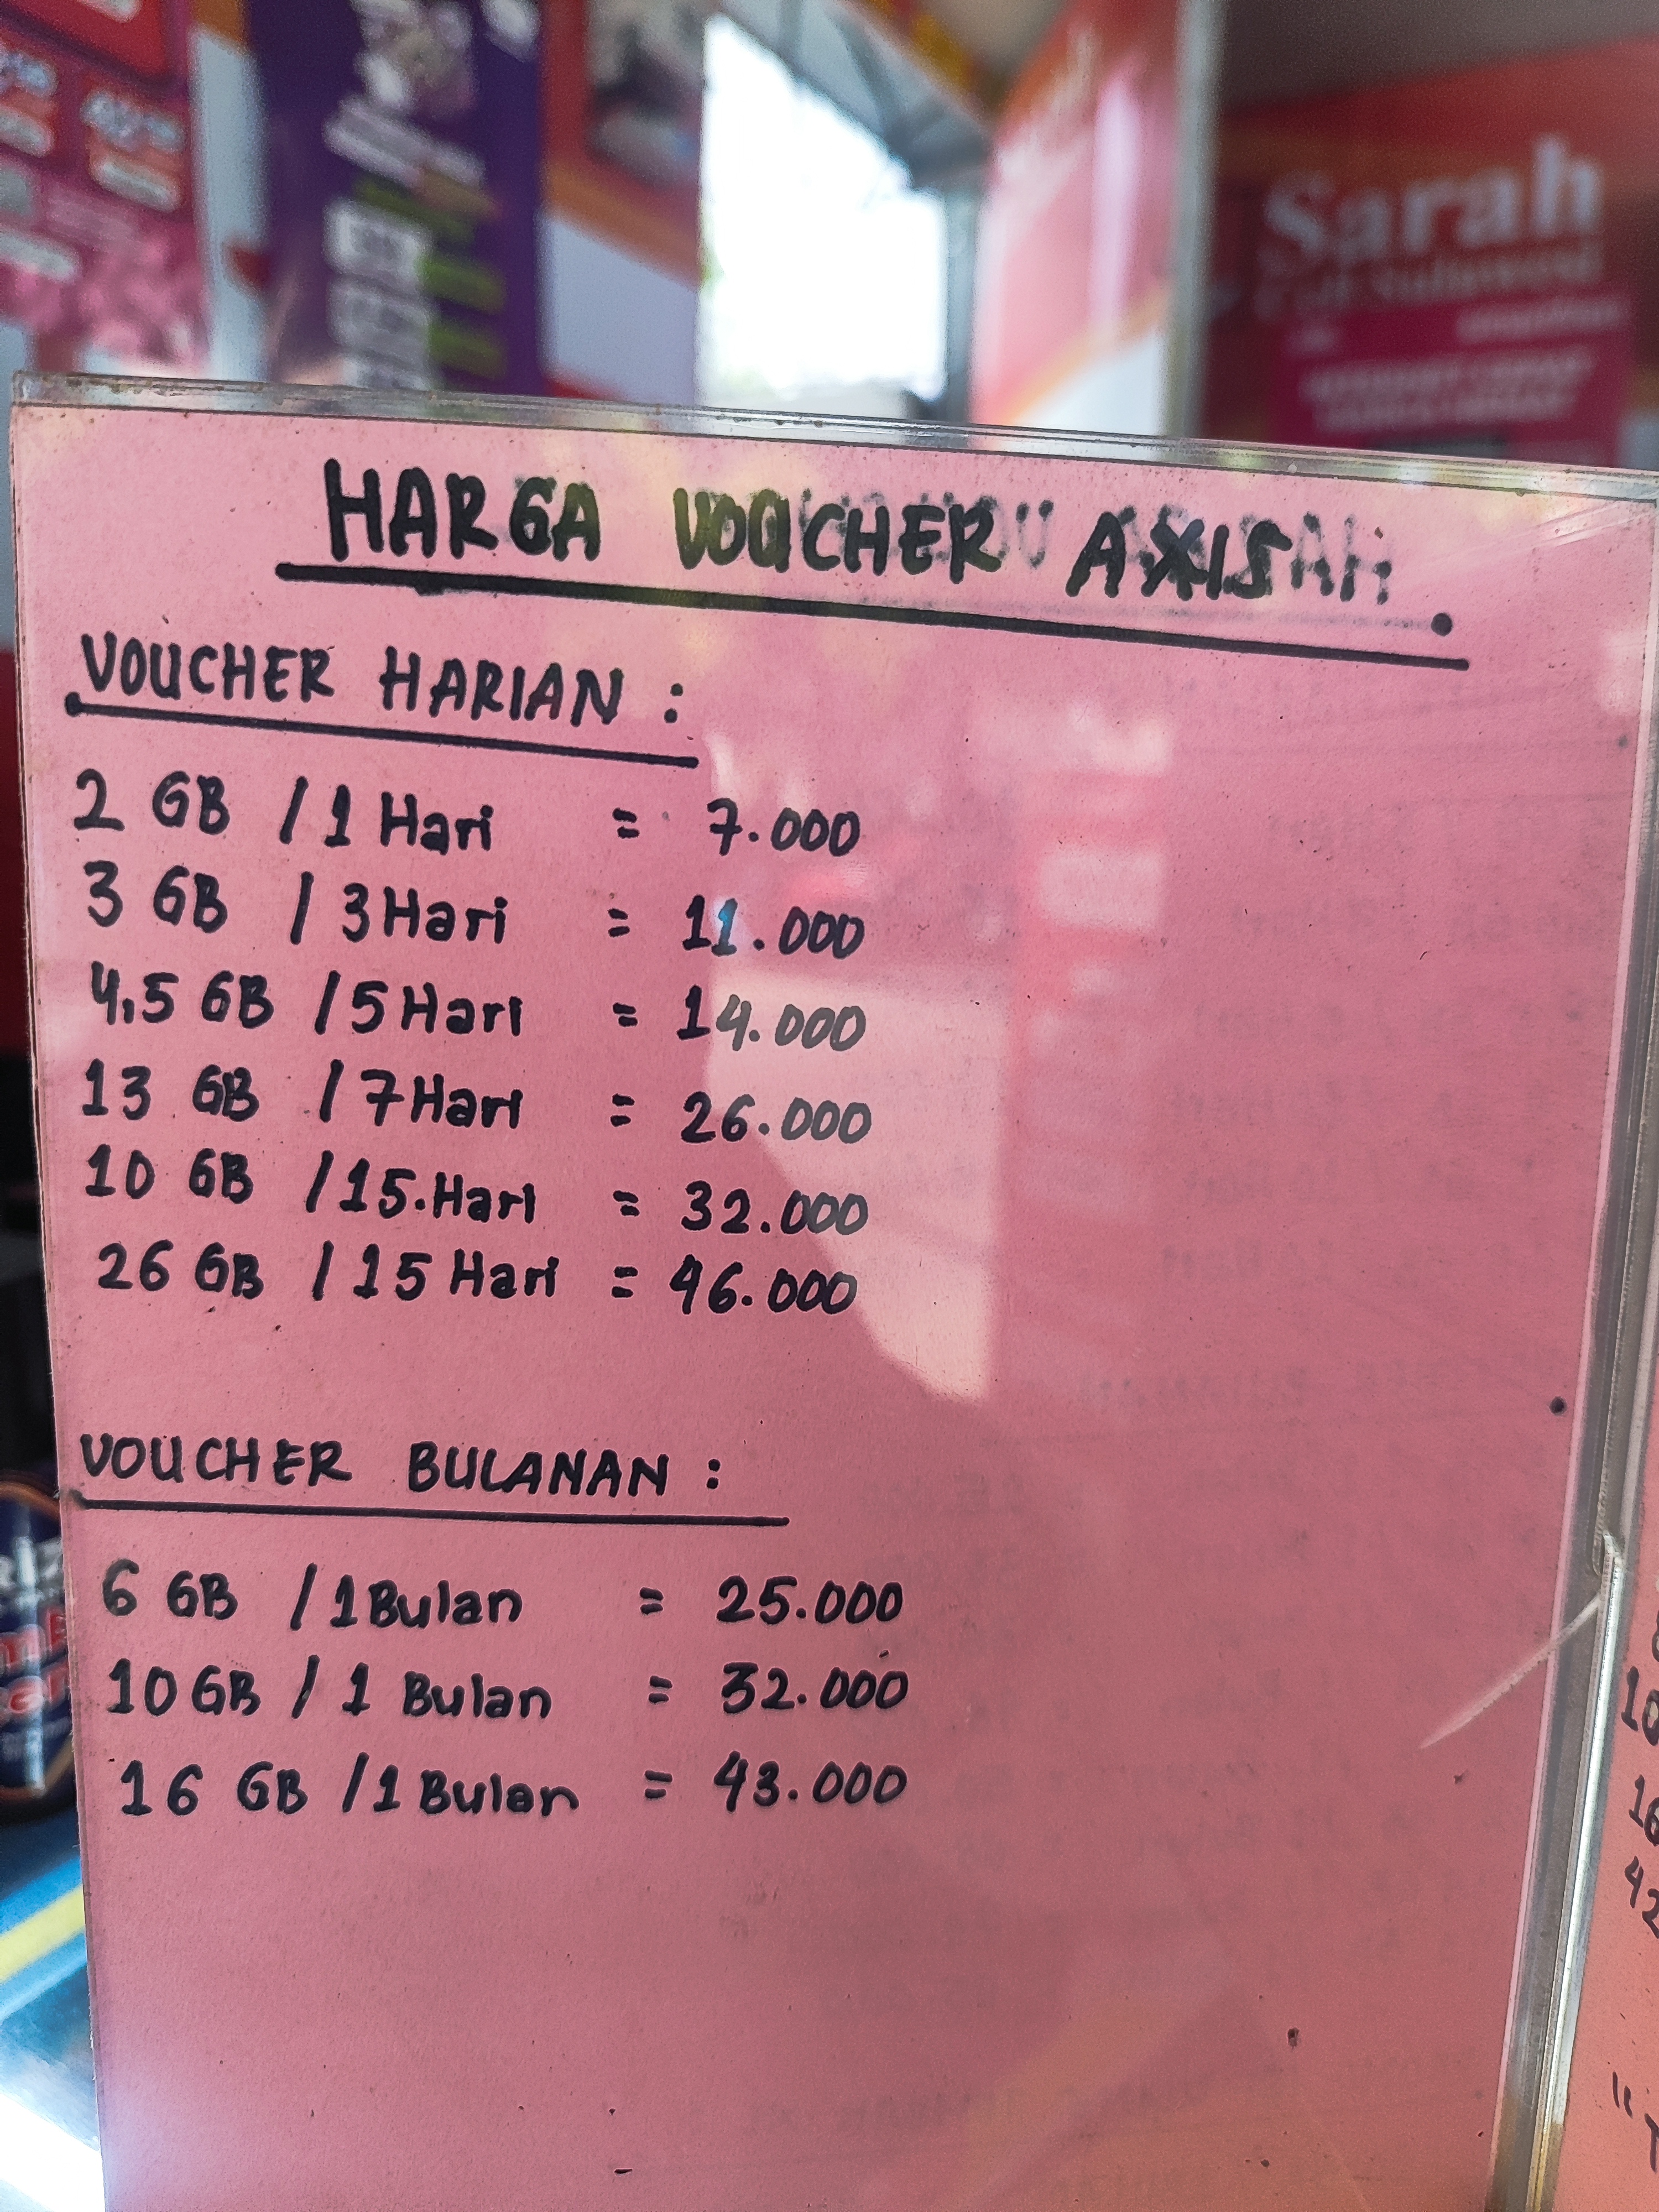 Sarah
HARGA VOUCHER AXIS
VOUCHER HARIAN :
2 GB / 1 Hari = 7.000
3 GB / 3 Hari = 11.000
4,5 GB / 5 Hari = 14.000
13 GB / 7 Hari = 26.000
10 GB / 15 Hari = 32.000
26 GB / 15 Hari = 46.000
VOUCHER BULANAN :
6 GB / 1 Bulan = 25.000
10 GB / 1 Bulan = 32.000
16 GB / 1 Bulan = 43.000
10
16
42